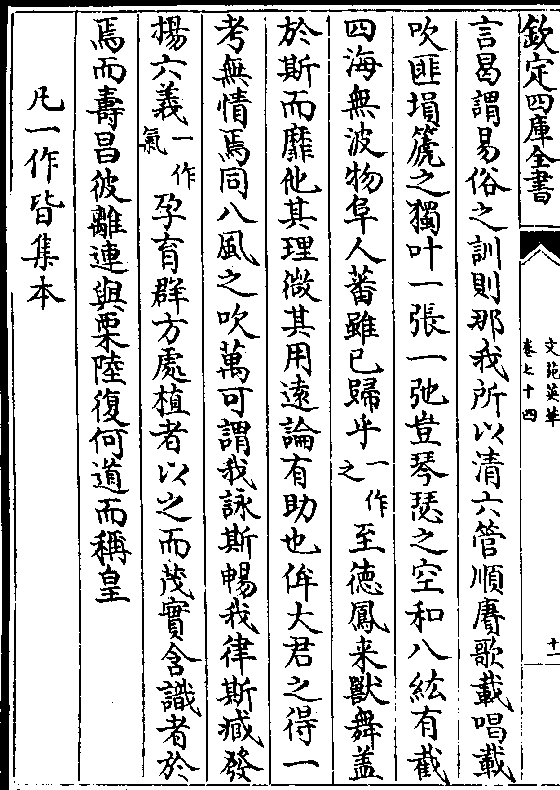 欽定四庫全書
文苑英華
卷七十四
十一
言曷謂易俗之訓則那我所以清六管順賡歌載唱載
吹匪塤篪之獨叶一張一弛豈琴瑟之空和八紘有截
四海無波物阜人蕃雖已歸乎一作之至徳鳳来獸舞盖
於斯而靡他其理微其用遠論有助也侔大君之得一
考無情焉同八風之吹萬可謂我詠斯暢我律斯臧發
揚六義一作氣孕育群方處植者以之而茂實含識者於
焉而壽昌彼離連與栗陸復何道而稱皇
凡一作皆集本